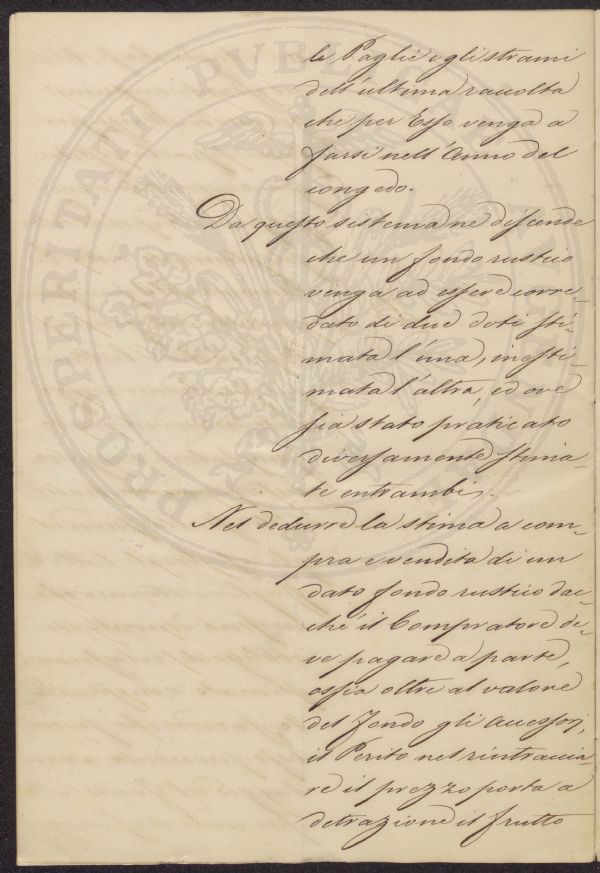 le Paglie e gli strami
dell'ultima raccolta
che per Esso venga a
farsi nell'Anno del
congedo.
Da questo sistema ne discende
che un fondo rustico
venga ad essere corre-
dato di due doti sti-
mata l'una, inesti-
mata l'altra, ed ove
sia stato praticato
diversamente stima-
te entrambi.
Nel dedurre la stima a com-
pra e vendita di un
dato fondo rustico dac-
ché il Compratore de-
ve pagare a parte,
ossia oltre al valore
del fondo gli accessorj,
il Perito nel rintraccia-
re il prezzo porta a
detrazione il frutto
PROSPERITATI PVBLICAE AVGENDAE